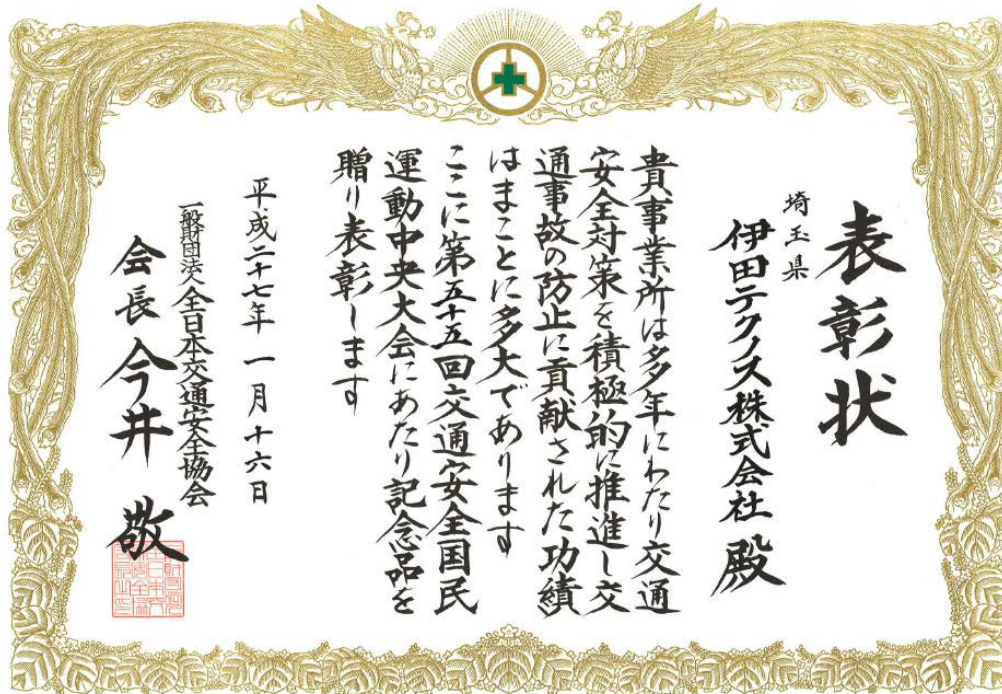 表彰状
埼玉県
伊田テクノス株式会社 殿
貴事業所は多年にわたり交通
安全対策を積極的に推進し交
通事故の防止に貢献された功績
はまことに多大であります
ここに第五十五回交通安全国民
運動中央大会にあたり記念品を
贈り表彰します
平成二十七年一月十六日
一般財団法人全日本交通安全協会
会長 今井 敬